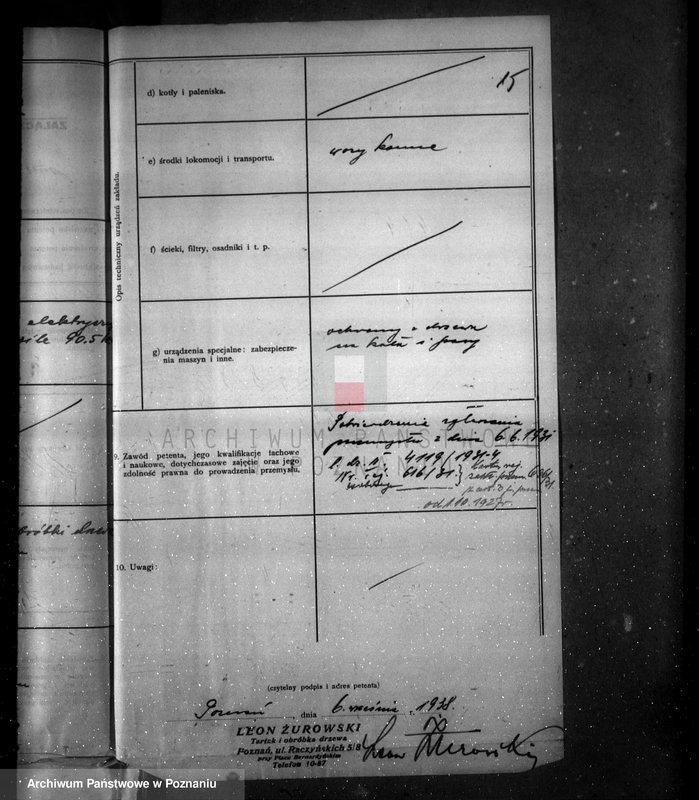 ZAŁĄC
15
Opis techniczny urządzeń zakładu.
d) kotły i paleniska.
e) środki lokomocji i transportu.
wozy konne
f) ścieki, filtry, osadniki i t. p.
g) urządzenia specjalne: zabezpiecze-
nia maszyn i inne.
ochrony z drzewa
na koła i pasy
elektryczn
90.5
9. Zawód petenta, jego kwalifikacje fachowe
i naukowe, dotychczasowe zajęcie oraz jego
zdolność prawna do prowadzenia przemysłu.
Potwierdzenie zgłoszenia
przemysłu z dnia 6.6.1931
4119/1931-4
616/31
od 1.10.1927r.
10. Uwagi:
ARCHIWUM PAŃSTWOWE
(czytelny podpis i adres petenta)
Poznań, dnia 6. września 1938.
LEON ŻUROWSKI
Tartak i obróbka drzewa
Poznań, ul. Raczyńskich 5/8
przy Placu Bernardyńskim
Telefon 10-87
Leon Żurowski
Archiwum Państwowe w Poznaniu